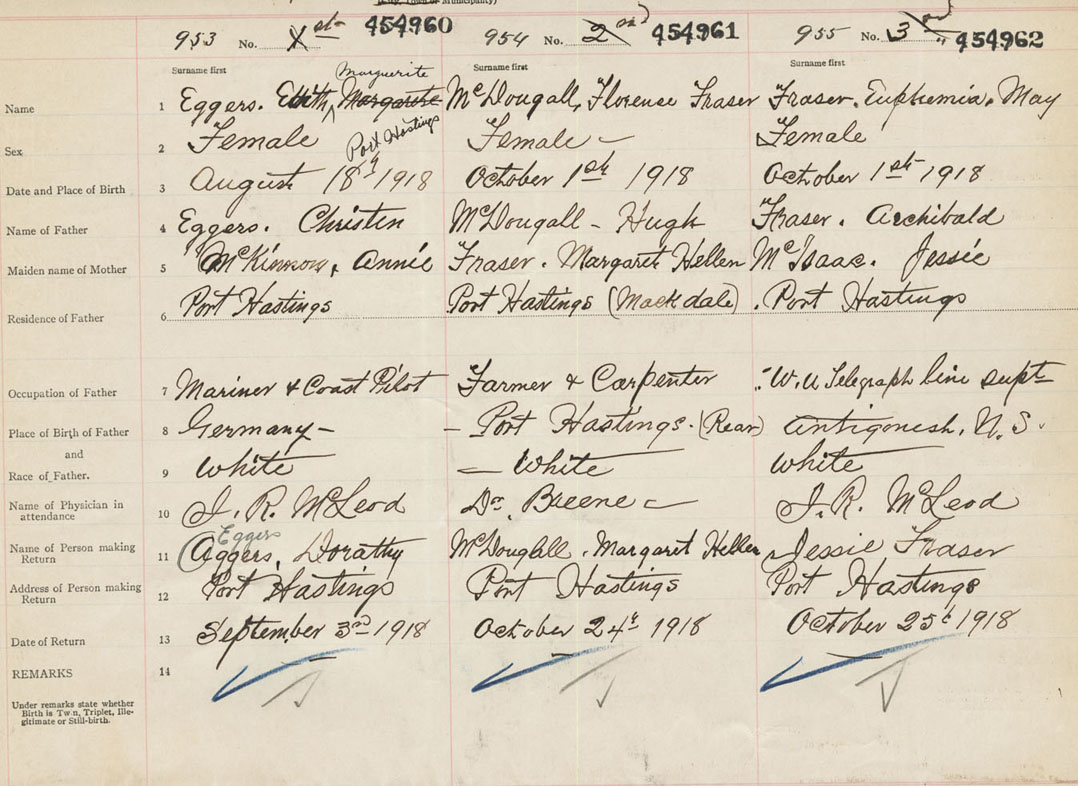 (City, Town or Municipality)
953 No. 1st 454960 954 No. 2nd 454961 955 No. 3rd 454962
Surname first Surname first Surname first
Marguerite
Name 1 Eggers. Edith, Margarite McDougall, Florence Fraser Fraser. Euphemia. May
Port Hastings
Sex 2 Female Female Female
Date and Place of Birth 3 August 18th 1918 October 1st 1918 October 1st 1918
Name of Father 4 Eggers. Christen McDougall - Hugh Fraser. Archibald
Maiden name of Mother 5 McKinnon, Annie Fraser. Margaret Hellen McIsaac. Jessie
Residence of Father 6 Port Hastings Port Hastings (Mackdale) Port Hastings
Occupation of Father 7 Mariner & Coast Pilot Farmer & Carpenter W. U Telegraph line supt
Place of Birth of Father 8 Germany - Port Hastings. (Rear) Antigonish, N. S.
and
Race of Father. 9 White White White
Name of Physician in
attendance 10 J. R. McLeod Dr. Breene J. R. McLeod
Eggers
Name of Person making
Return 11 (Aggers, Dorathy McDougall. Margaret Hellen Jessie Fraser
Address of Person making
Return 12 Port Hastings Port Hastings Port Hastings
Date of Return 13 September 3rd 1918 October 24th 1918 October 25t 1918
REMARKS 14
Under remarks state whether
Birth is Twin, Triplet, Ille-
gitimate or Still-birth.